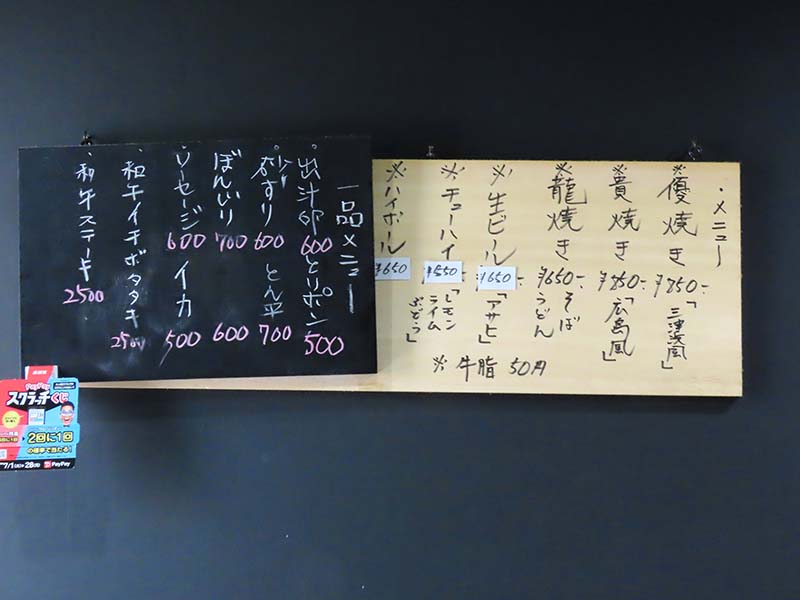 ・メニュー
※優焼き ¥850-「三津浜風」
※貴焼き ¥850-「広島風」
※龍焼き ¥650- そば
うどん
※生ビール ¥650-「アサヒ」
※チューハイ ¥550-「レモン
ライム
ぶどう」
※ハイボール ¥650
※ 牛脂 50円
一品メニュー
・出汁卵 600 とりポン 500
・砂ずり 600 とん平 700
ぼんじり 700 600
・ソーセージ 600 イカ 500
・和牛イチボタタキ 2500
・和牛ステーキ 2500
PayPay
スクラッチくじ
2回に1回
の確率で当たる!
7/1 28
PayPay